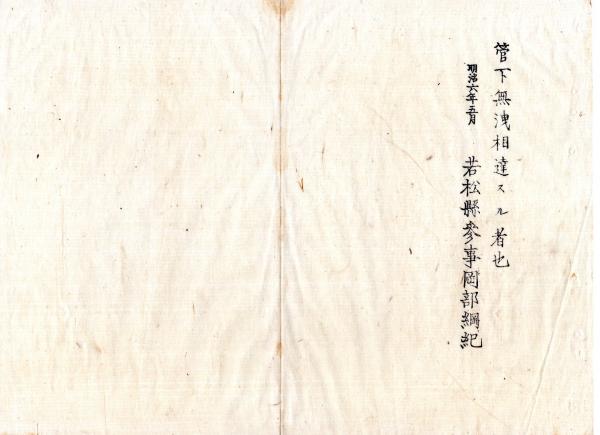 管下無洩相達スル者也
明治六年五月 若松縣參事岡部綱紀